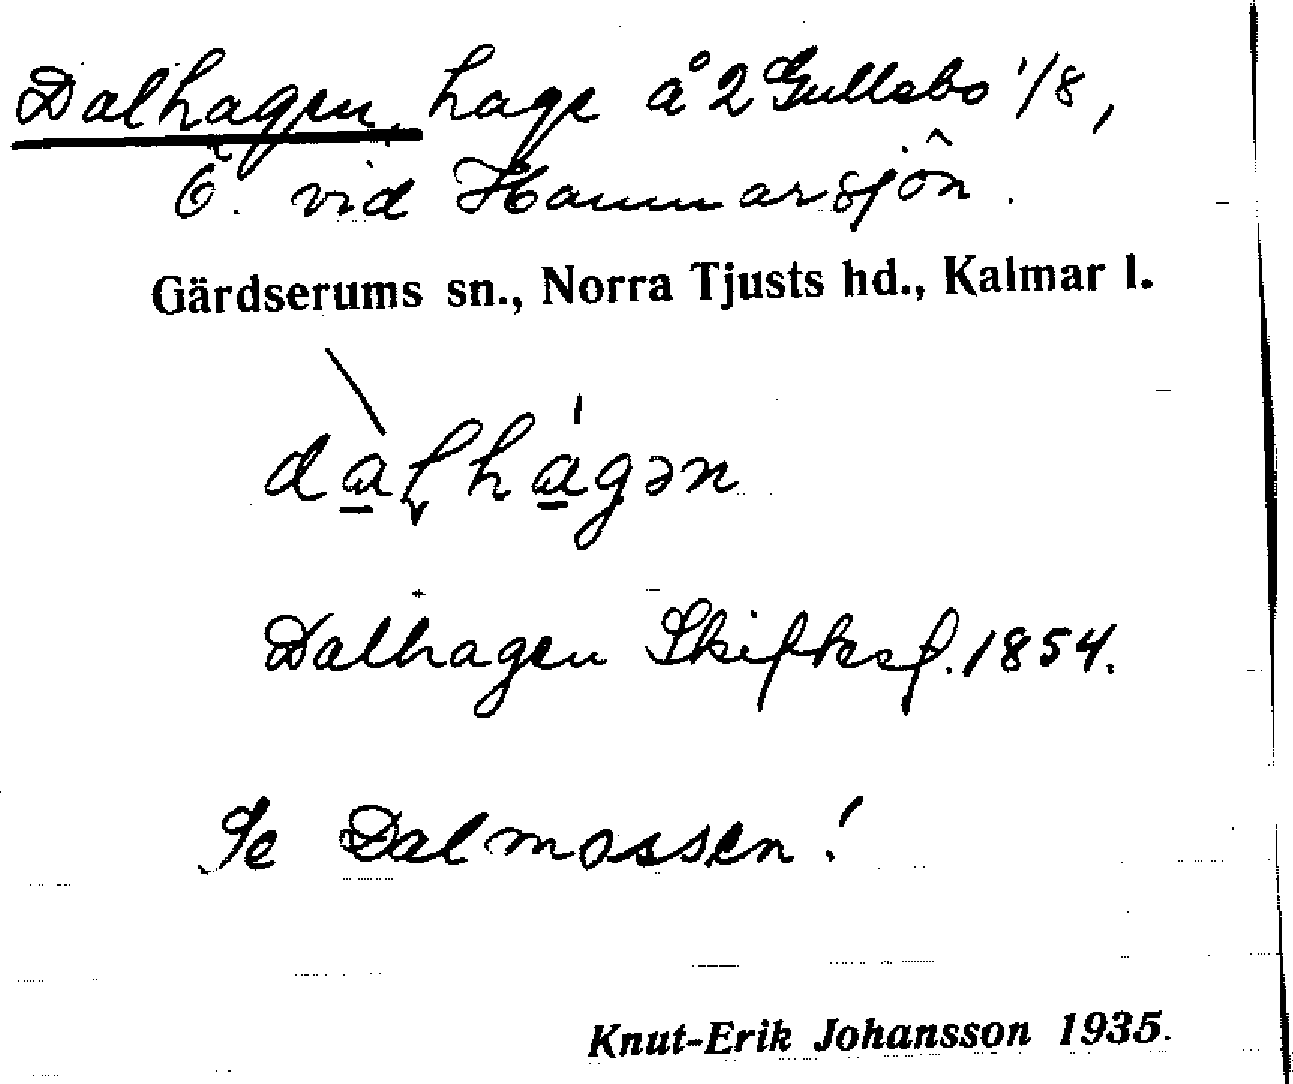 Dalhagen, hage å 2 Gullebo 1/8,
Ö. vid Hammarsjön.
Gärdserums sn., Norra Tjusts hd., Kalmar l.
dàḷhágən
Dalhagen Skiftesf. 1854.
Se Dalmossen!
Knut-Erik Johansson 1935.